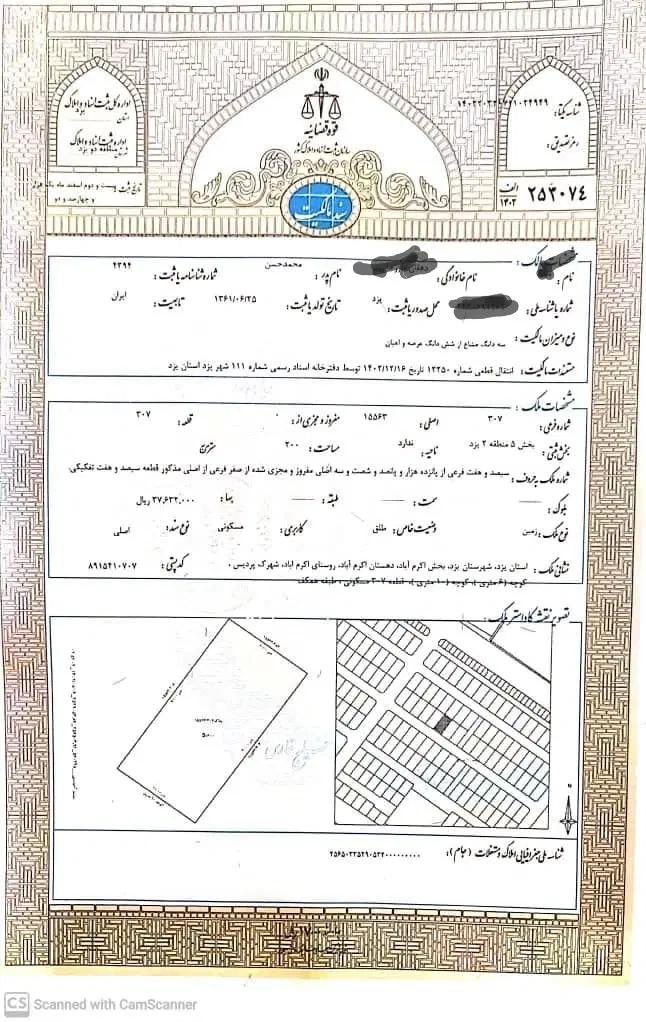 قوه قضائیه
سازمان ثبت اسناد و املاک کشور
سند مالکیت
اداره کل ثبت اسناد و املاک
استان یزد
اداره ثبت اسناد و املاک
منطقه دو یزد
تاریخ ثبت بیست و دوم اسفند ماه یک هزار
و چهارصد و دو
شناسه یکتا:
رمز تصدیق:
۲۵۲۰۷۴ الف ۱۴۰۲
مشخصات مالک:
نام: نام خانوادگی: نام پدر: محمدحسن شماره شناسنامه یا ثبت: ۴۳۹۴
شماره یا شناسه ملی: محل صدور یا ثبت: یزد تاریخ تولد یا ثبت: ۱۳۶۱/۰۶/۲۵ تابعیت: ایران
نوع و میزان مالکیت: سه دانگ مشاع از شش دانگ عرصه و اعیان
مستندات مالکیت: انتقال قطعی شماره ۱۲۲۵۰ تاریخ ۱۴۰۲/۱۲/۱۶ توسط دفترخانه اسناد رسمی شماره ۱۱۱ شهر یزد استان یزد
مشخصات ملک:
شماره فرعی: ۳۰۷ اصلی: ۱۵۵۶۳ مفروز و مجزی از: ۰ قطعه: ۳۰۷
بخش ثبتی: بخش ۵ منطقه ۲ یزد ناحیه: ندارد مساحت: ۲۰۰ مترمربع
شماره ملک به حروف: سیصد و هفت فرعی از پانزده هزار و پانصد و شصت و سه اصلی مفروز و مجزی شده از صفر فرعی از اصلی مذکور قطعه سیصد و هفت تفکیکی.
بلوک: سمت: طبقه: بها: ۳۷,۶۳۲,۰۰۰ ریال
نوع ملک: زمین وضعیت خاص: طلق کاربری: مسکونی نوع سند: اصلی
نشانی ملک: استان یزد، شهرستان یزد، بخش اکرم آباد، دهستان اکرم آباد، روستای اکرم آباد، شهرک پردیس، کد پستی: ۸۹۱۵۴۱۰۷۰۷
کوچه (۶ متری)، کوچه (۱۰ متری)، قطعه ۳۰۷ مسکونی، طبقه همکف
تصویر نقشه کاداستر ملک:
شناسه ملی جغرافیایی املاک و مستغلات (جام):
CS Scanned with CamScanner